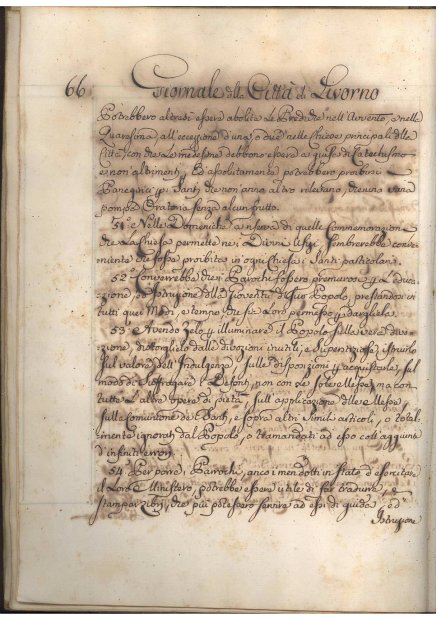 66 Giornale della Città di Livorno
Potrebbero altresì essere abolite le Prediche nell'Avvento, e nella
Quaresima, all'eccezione d'una, o due nelle Chiese principali della
Città, con che le medesime debbono essere a guisa di Catechismo
e non altrimenti. Ed assolutamente potrebbero proibirsi i
Panegirici pei Santi che non anno altro rilievo, che una vana
pompa Oratoria senza alcun frutto.
51.º Nelle Domeniche a riserva di quelle Commemorazioni
che la Chiesa permette nei Divini Ufizi, sembrerebbe conve-
niente che fosse proibita in ogni Chiesa i Santi particolari.
52.º Converrebbe che i Parochi fossero premurosi per l'educa-
zione, ed istruzione della Gioventù di suo Popolo, prestandosi in
tutti quei Modi, e tempo, che sia Loro permesso per dargliela.
53. Avendo zelo per illuminare il Popolo sulla vera divo-
zione, distorglielo dalle divozioni inutili, e superstiziose, istruirlo
sul valore dell'Indulgenze, sulle disposizioni per acquistarle, sul
modo di suffragare i Defonti, non con le sole Messe, ma con
tutte l'altre opere di pietà, sull'applicazione delle Messe,
sulla Comunione de' Santi, e sopra altri simili articoli, o total-
mente ignorati dal Popolo, o tramandati ad esso coll'aggiunta
d'infiniti errori.
54. Per porre i Parochi, anco i men dotti in stato di esercitare
il Loro Ministero, potrebbe essere utile di far tradurre, e
stampar Libri, che più potessero servire ad essi di guida, ed
Istruzione